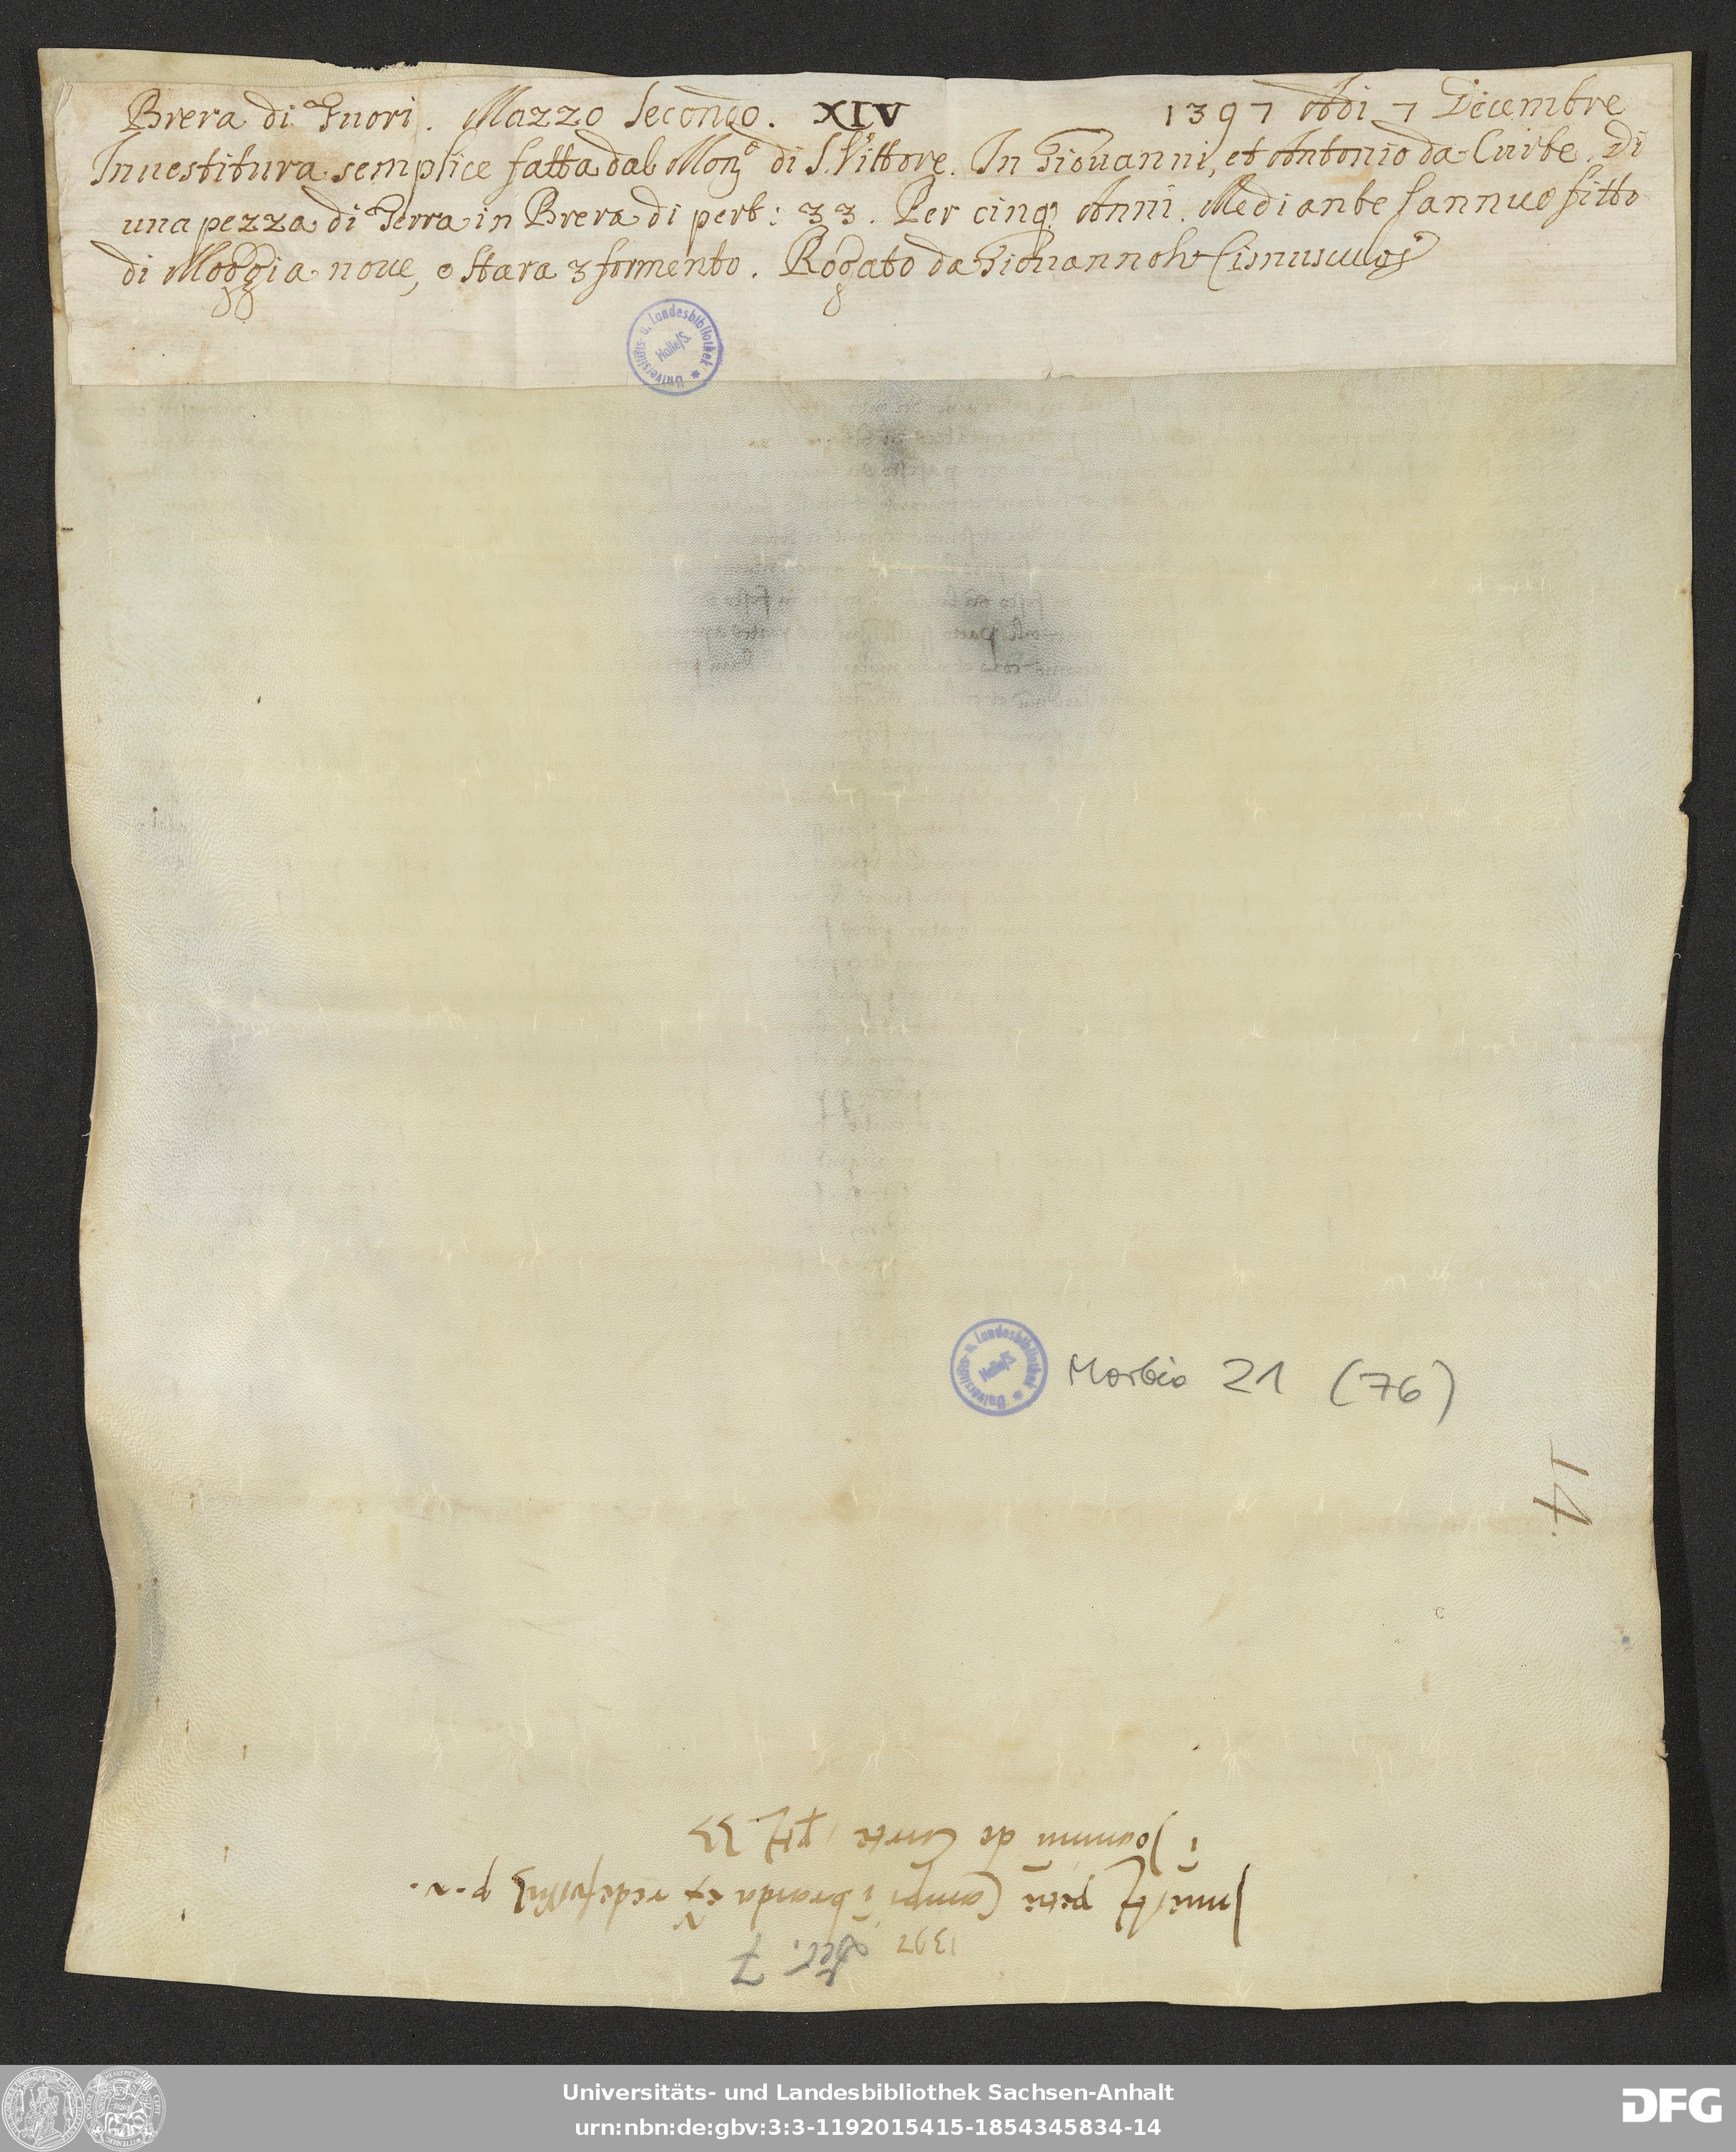 Brera di Fuori. Mazzo Secondo. XIV 1397 Adi 7 Decembre
Inuestitura semplice fatta dal Monº di S. Vittore. In Giouanni, et Antonio da Curte. Di
una pezza di Terra in Brera di pert: 33. Per cinq; Anni. Mediante l'annuo fitto
di Moggia noue, e stara 3 formento. Rogato da Giouannolo Cisnusculos
Universitäts- u. Landesbibliothek
Halle/S.
Universitäts- u. Landesbibliothek
Halle/S.
Morbio 21 (76)
14.
1397 Dec. 7
petie Campi i braida
i Joannem de Curte, pt 33
Universitäts- und Landesbibliothek Sachsen-Anhalt
urn:nbn:de:gbv:3:3-1192015415-1854345834-14
DFG